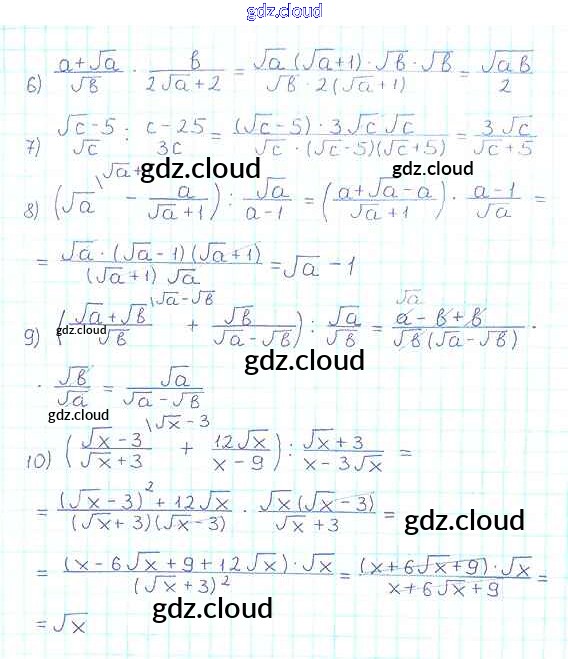 gdz.cloud
6) (a+√a)/√b · b/(2√a+2) = (√a(√a+1)·√b·√b)/(√b·2(√a+1)) = √ab/2
7) (√c-5)/√c : (c-25)/3c = ((√c-5)·3√c√c)/(√c·(√c-5)(√c+5)) = 3√c/(√c+5)
gdz.cloud gdz.cloud
8) (√a \√a+ - a/(√a+1)) : √a/(a-1) = ((a+√a-a)/(√a+1)) · (a-1)/√a =
= (√a·(√a-1)(√a+1))/((√a+1)√a) = √a-1
gdz.cloud
9) ((√a+√b)/√b \√a-√b + √b/(√a-√b)) : √a/√b = (a-b+b)/(√b(√a-√b)) · √a
gdz.cloud gdz.cloud
· √b/√a = √a/(√a-√b)
gdz.cloud
10) ((√x-3)/(√x+3) \√x-3 + 12√x/(x-9)) : (√x+3)/(x-3√x) =
= ((√x-3)²+12√x)/((√x+3)(√x-3)) · √x(√x-3)/(√x+3) =
gdz.cloud
= ((x-6√x+9+12√x)·√x)/(√x+3)² = ((x+6√x+9)·√x)/(x+6√x+9) =
= √x
gdz.cloud
gdz.cloud